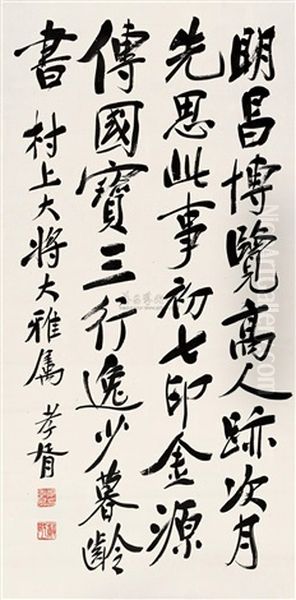 明昌博覽高人跡次月
先思此事初七印金源
傳國寶三行逸少暮齡
書
村上大将大雅属 孝胥